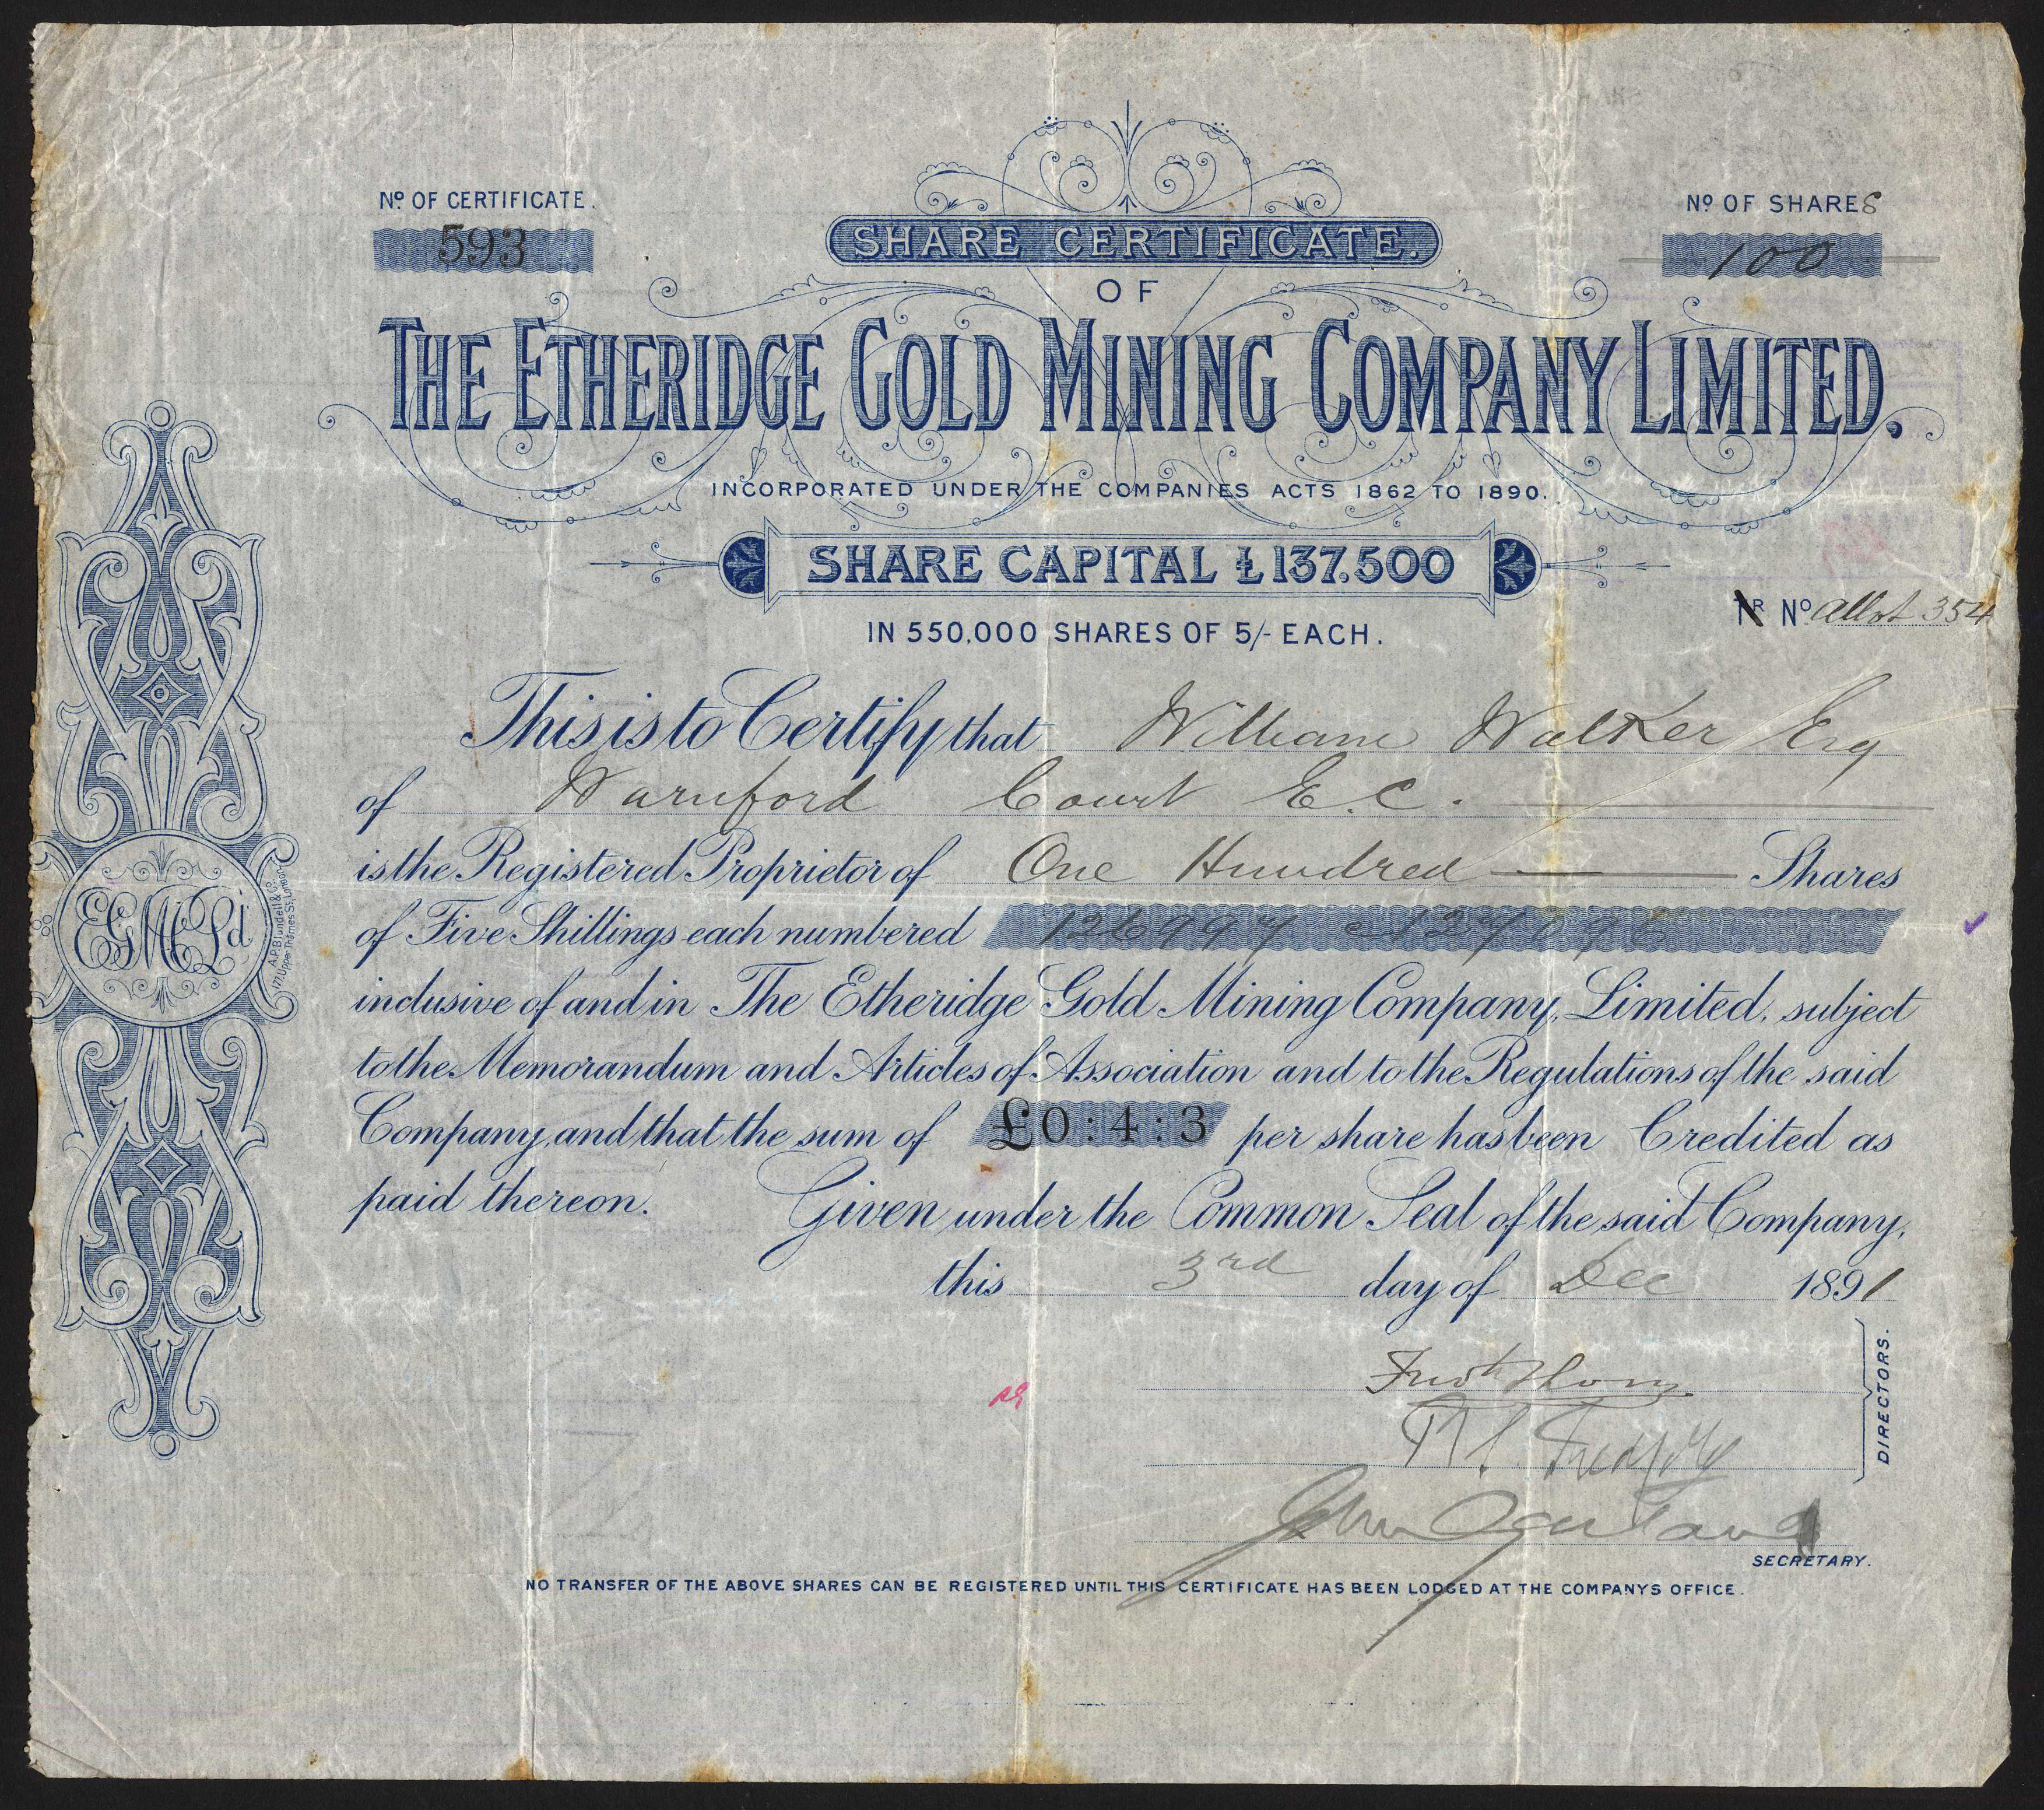 Nº OF CERTIFICATE.
593
Nº OF SHARES
100
SHARE CERTIFICATE.
OF
THE ETHERIDGE GOLD MINING COMPANY LIMITED.
INCORPORATED UNDER THE COMPANIES ACTS 1862 TO 1890.
SHARE CAPITAL £137.500
IN 550,000 SHARES OF 5/- EACH.
TR Nº Allot 354
This is to Certify that William Walker Esq
of Warnford Court E.C.
is the Registered Proprietor of One Hundred Shares
of Five Shillings each numbered 126997 @ 127096
inclusive of and in The Etheridge Gold Mining Company, Limited, subject
to the Memorandum and Articles of Association and to the Regulations of the said
Company, and that the sum of £0:4:3 per share has been Credited as
paid thereon. Given under the Common Seal of the said Company,
this 3rd day of Dec 1891
DIRECTORS.
John
SECRETARY.
NO TRANSFER OF THE ABOVE SHARES CAN BE REGISTERED UNTIL THIS CERTIFICATE HAS BEEN LODGED AT THE COMPANYS OFFICE.
EGMCLd
A.P. Blundell & Co
177, Upper Thames St, London